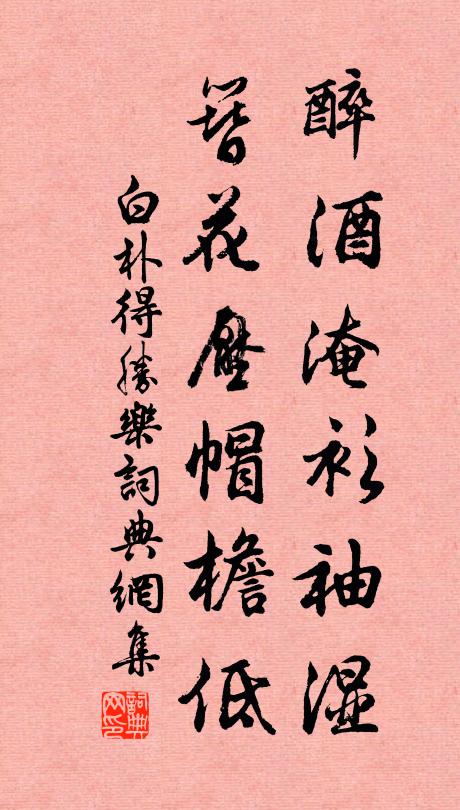 醉酒淹衫袖湿
簪花壓帽檐低
白朴得勝樂詞典網集
詞典网印